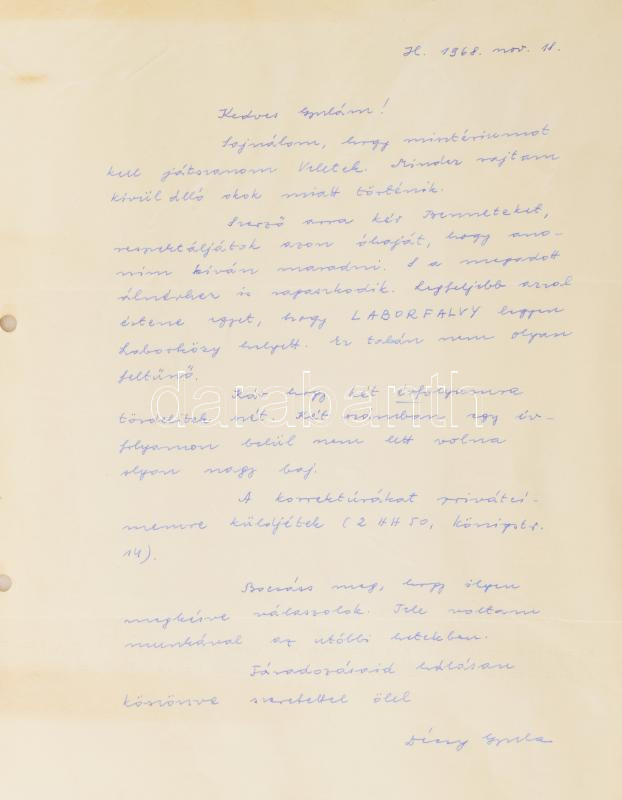 H. 1968. nov. 18.
Kedves Gyulám!
Sajnálom, hogy mintériumot
kell játszanom Veletek. Mindez rajtam
kívül álló okok miatt történik.
Szerző arra kér Benneteket,
respektáljátok azon óhaját, hogy ano-
nim kíván maradni. S a megadott
álnévhez is ragaszkodik. Legfeljebb azzal
értene egyet, hogy LABORFALVY legyen
Laborközy helyett. Ez talán nem olyan
feltűnő.
Kár hogy két évfolyamra
tördelitek szét. Két számban egy év-
folyamon belül nem lett volna
olyan nagy baj.
A korrektúrákat privátcí-
memre küldjétek (2 HH 50, Königstr.
14).
Bocsáss meg, hogy ilyen
megkésve válaszolok. Tele voltam
munkával az utóbbi hetekben.
Fáradozásaid hálásan
köszönve szeretettel ölel
Décsy Gyula
darabanth